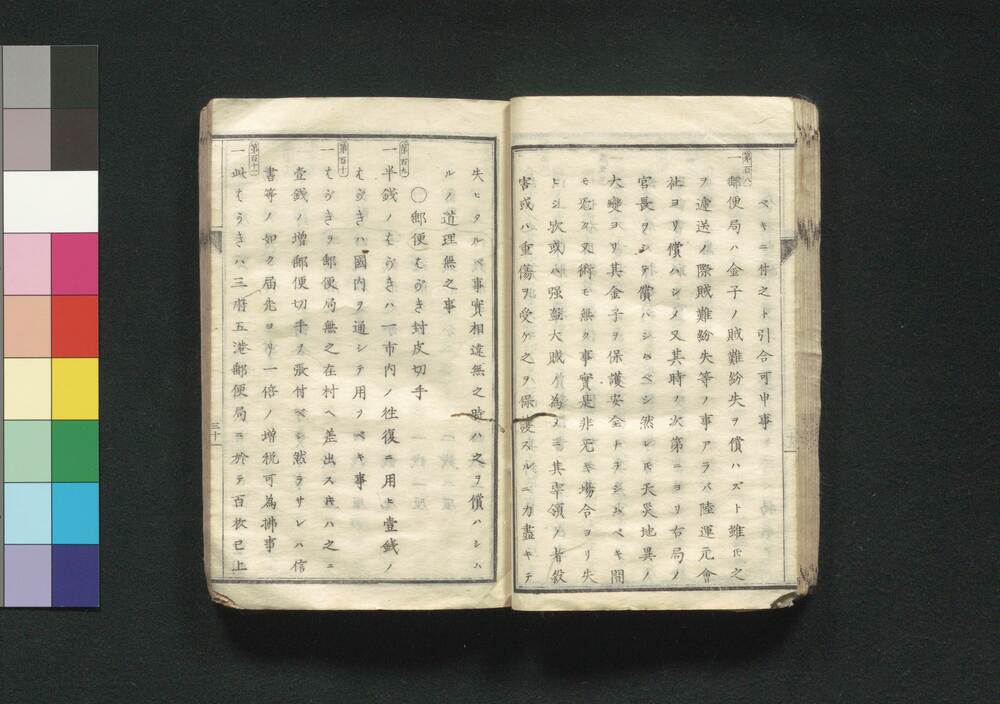 ベキニ付之ト引合可申事
第百八
一郵便局ハ金子ノ賊難紛失ヲ償ハズト雖𪜈之
ヲ遞送ノ際賊難紛失等ノ事アラバ陸運元會
社ヨリ償ハシメ又其時ノ次第ニヨリ右局ノ
官長ヲシテ償ハシムベシ然レ𪜈天災地異ノ
大變ヨリ其金子ヲ保護安全トナシムベキ間
モ无ク又術モ無ク事實是非无キ場合ヨリ失
ヒシ欤或ハ强盗大賊ノ為メニ其宰領ノ者殺
害或ハ重傷ヲ受ケ之ヲ保護スルニ力盡キテ
失ヒタルベ事實相違無之時ハ之ヲ償ハシム
ルノ道理無之事
〇郵便はがき封皮切手
第百九
一半錢ノはがきハ一市内ノ徃復ニ用ヒ壹錢ノ
はがきハ國内ヲ通シテ用ヲベキ事
第百十
一はがきヲ郵便局無之在村ヘ差出ス時ハ之ニ
壹錢ノ增郵便切手ヲ張付ベシ然ラサレハ信
書等ノ如ク届先ヨリ一倍ノ增税可為拂事
第百十一
一此はがきハ三府五港郵便局ニ於テ百枚已上
三十一